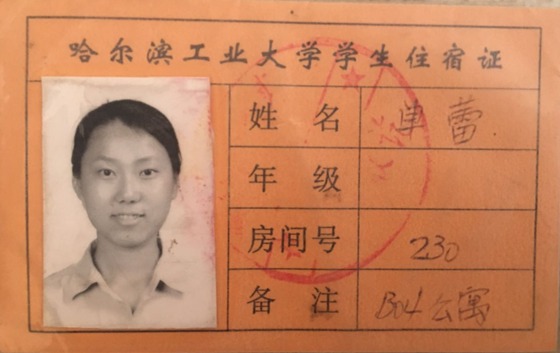 哈尔滨工业大学学生住宿证
姓 名 单蕾
年 级
房间号 230
备 注 B04公寓